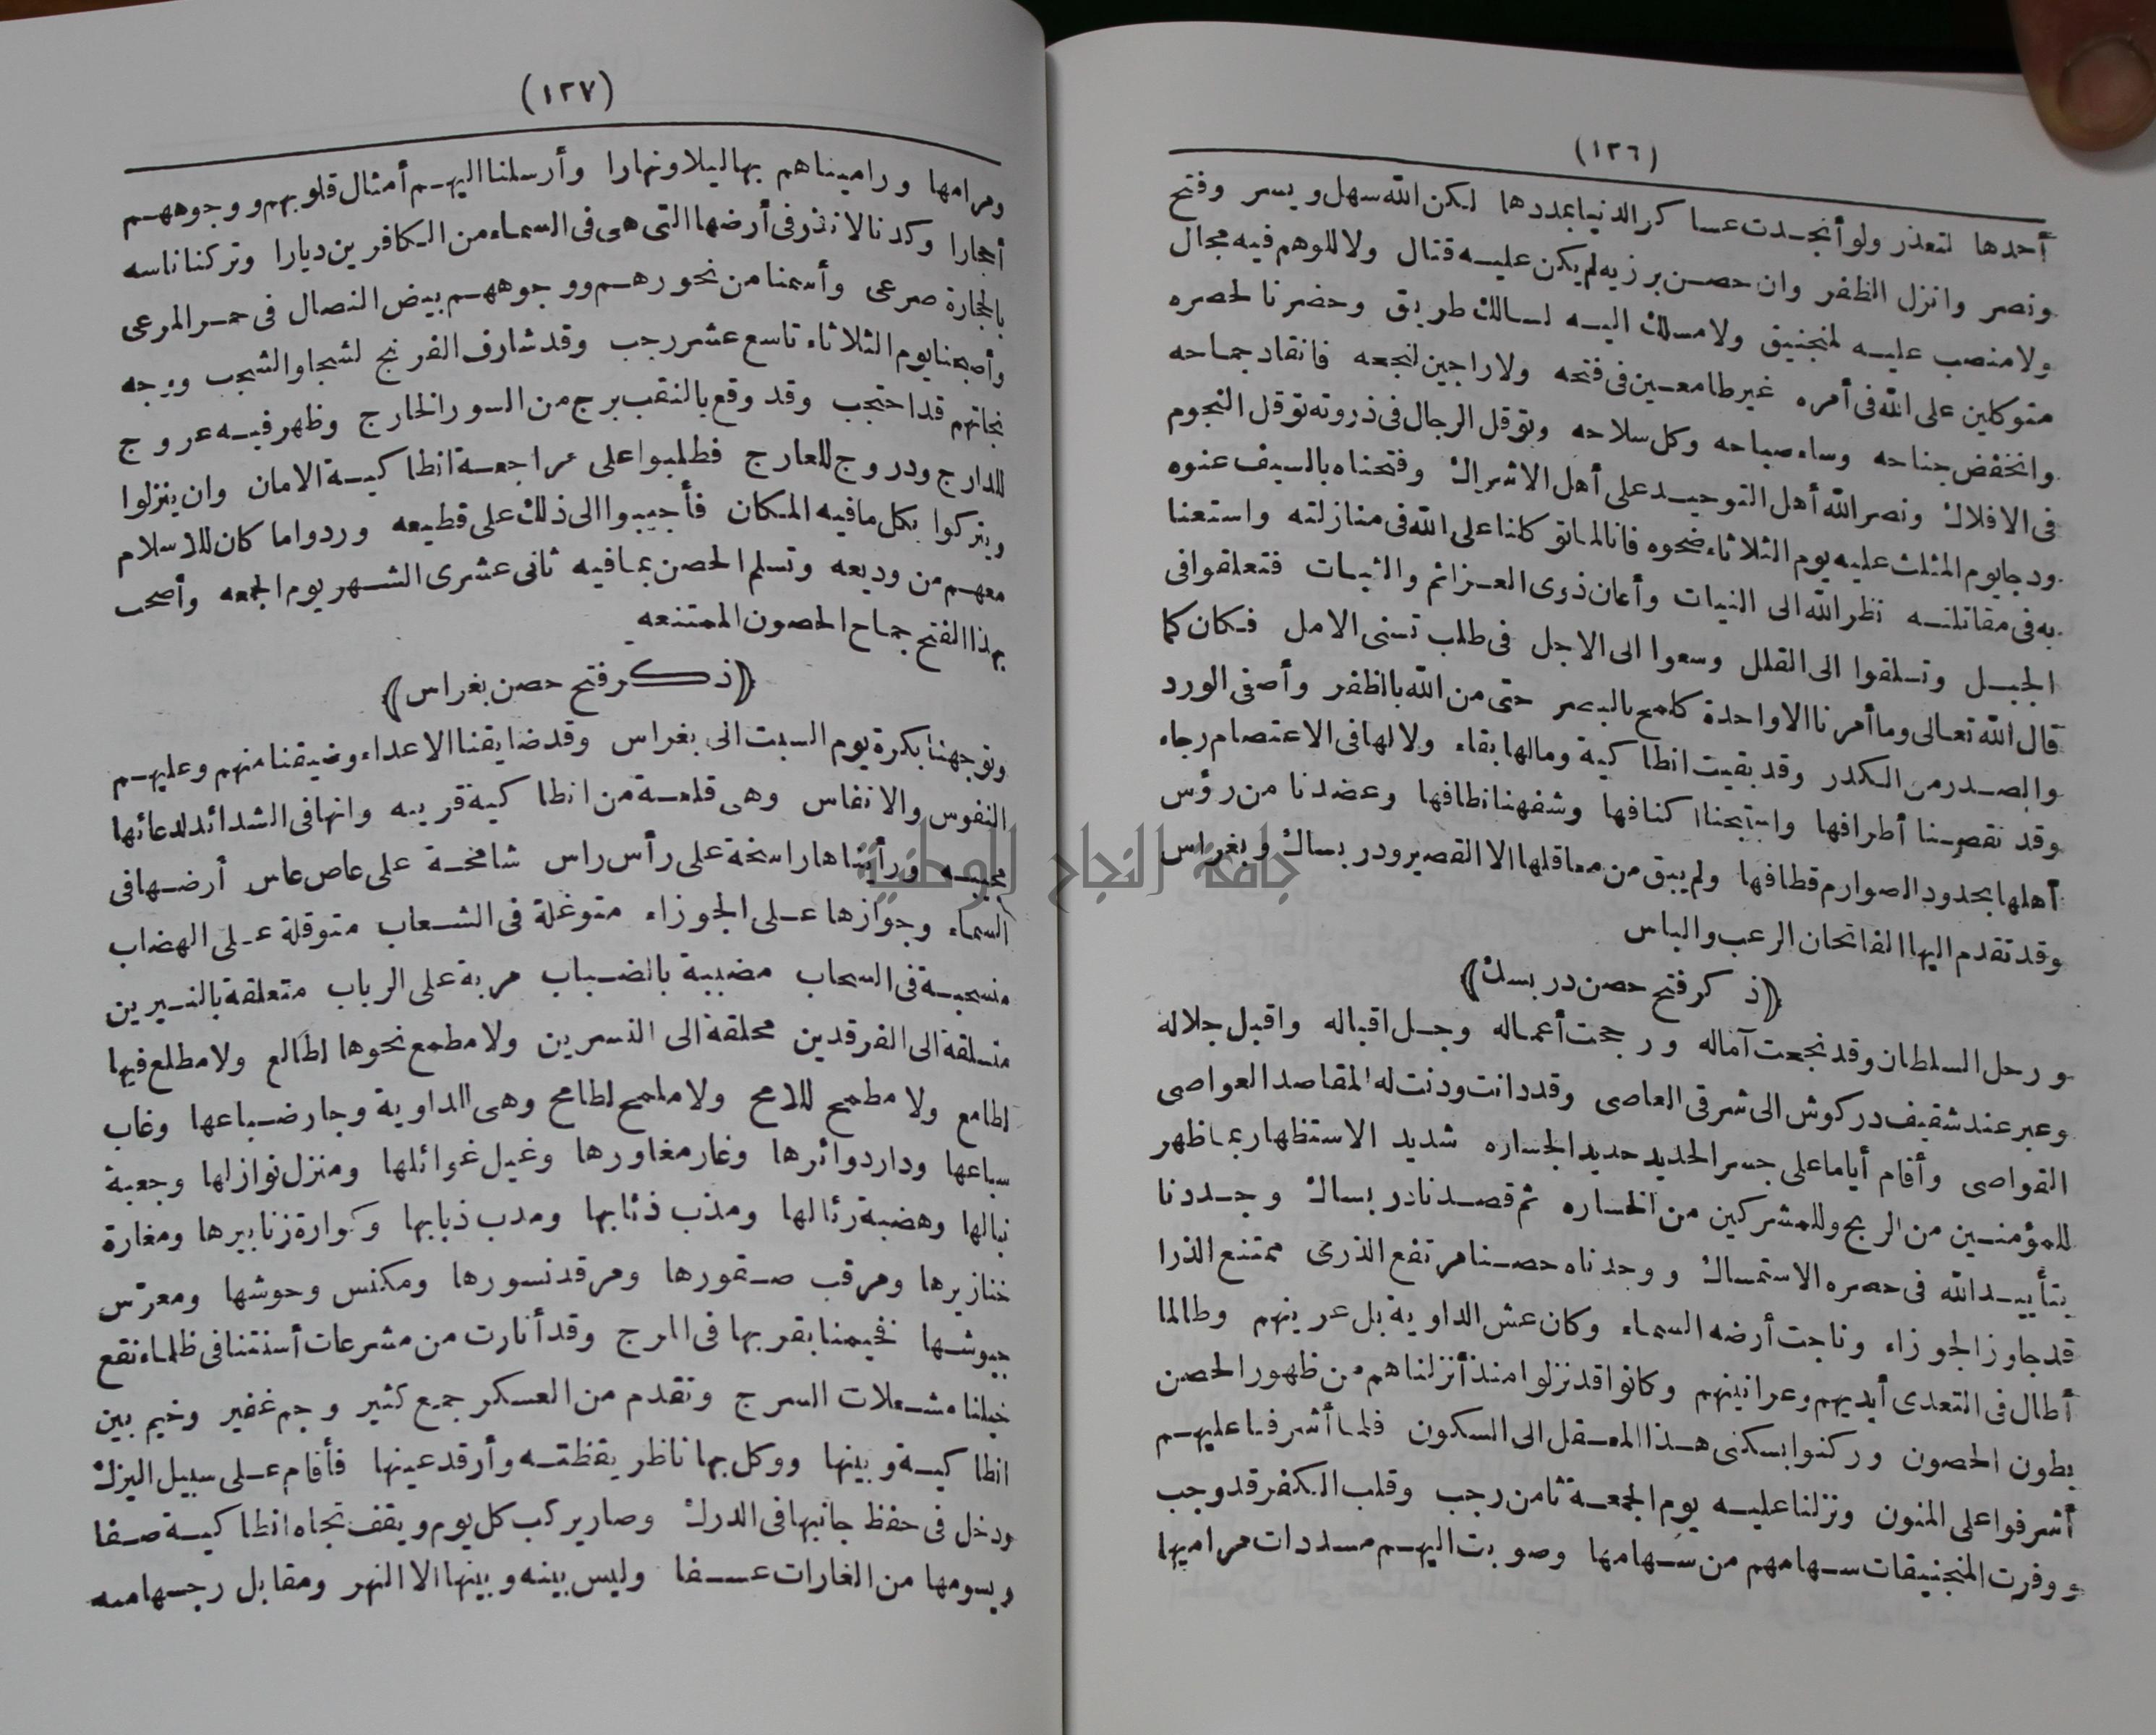 (١٢٦)
أحدها لتعذر ولو أنجدت عساكر الدنيا بمددها لكن الله سهل ويسر وفتح
ونصر وانزل الظفر وان حصن برزيه لم يكن عليه قتال ولا للوهم فيه مجال
ولا منصب عليه لمنجنيق ولا مسلك اليه لسالك طريق وحضرنا لحصره
متوكلين على الله فى أمره غير طامعين فى فتحه ولا راجين لنجعه فانقاد جماحه
وانخفض جناحه وساء صباحه وكل سلاحه وتوقل الرجال فى ذروته توقل النجوم
فى الافلاك ونصر الله أهل التوحيد على أهل الاشراك وفتحناه بالسيف عنوه
ودجا يوم المثلث عليه يوم الثلاثاء ضحوه فانا لما توكلنا على الله فى منازلته واستعنا
به فى مقاتلته نظر الله الى النيات وأعان ذوى العزائم والثبات فتعلقوا فى
الجبل وتسلقوا الى القلل وسعوا الى الاجل فى طلب تسنى الامل فكان كما
قال الله تعالى وما أمرنا الا واحدة كلمح بالبصر حتى من الله بالظفر وأصفى الورد
والصدر من الكدر وقد بقيت انطاكية ومالها بقاء ولا لها فى الاعتصام رجاء
وقد نقصنا أطرافها واستبحنا اكنافها وشفهنا نطافها وعضدنا من رؤس
أهلها بحدود الصوارم قطافها ولم يبق من معاقلها الا القصير ودربساك وبغراس
وقد تقدم اليها الفاتحان الرعب والباس
﴿ذكر فتح حصن دربسك﴾
ورحل السلطان وقد نجحت آماله ورجحت أعماله وجل اقباله واقبل جلاله
وعبر عند شقيف دركوش الى شرقى العاصى وقد دانت ودنت له المقاصد العواصى
القواصى وأقام أياما على جسر الحديد حديد الجساره شديد الاستظهار بما ظهر
للمؤمنين من الربح وللمشركين من الخساره ثم قصدنا دربساك وجددنا
بتأييد الله فى حصره الاستمساك ووجدناه حصنا مرتفع الذرى ممتنع الذرا
قد جاوز الجوزاء وناجت أرضه السماء وكان عش الداوية بل عرينهم وطالما
أطال فى التعدى أيديهم وعرانينهم وكانوا قد نزلوا منذ أنزلناهم من ظهور الحصن
بطون الحصون وركنوا بسكنى هذا المعقل الى السكون فلما أشرفنا عليهم
أشرفوا على المنون ونزلنا عليه يوم الجمعة ثامن رجب وقلب الكفر قد وجب
ووفرت المنجنيقات سهامهم من سهامها وصوبت اليهم مسددات مراميها
(١٢٧)
ومرامها وراميناهم بها ليلا ونهارا وأرسلنا اليهم أمثال قلوبهم ووجوههم
أحجارا وكدنا لا نذر فى أرضها التى هى فى السماء من الكافرين ديارا وتركنا ناسه
بالحجارة صرعى وأسمنا من نحورهم ووجوههم بيض النصال فى حمر المرعى
وأصبحنا يوم الثلاثاء تاسع عشر رجب وقد شارف الفرنج لشجا والشجب ووجه
نجاتهم قد احتجب وقد وقع بالنقب برج من السور الخارج وظهر فيه عروج
للدارج ودروج للعارج فطلبوا على مراجعة انطاكية الامان وان ينزلوا
ويتركوا بكل ما فيه المكان فأجيبوا الى ذلك على قطيعه وردوا ما كان للاسلام
معهم من وديعه وتسلم الحصن بما فيه ثانى عشرى الشهر يوم الجمعه وأصحب
بهذا الفتح جماح الحصون الممتنعه
﴿ذكر فتح حصن بغراس﴾
وتوجهنا بكرة يوم السبت الى بغراس وقد ضايقنا الاعداء وضيقنا منهم وعليهم
النفوس والانفاس وهى قلعة من انطاكية قريبه وانها فى الشدائد لدعائها
مجيبه ورأيناها راسخة على رأس راس شامخة على عاص عاس أرضها فى
السماء وجوازها على الجوزاء متوغلة فى الشعاب متوقلة على الهضاب
منسحبة فى السحاب مضببة بالضباب مربة على الرباب متعلقة بالنيرين
متسلقة الى الفرقدين محلقة الى النسرين ولا مطمع نحوها لطالع ولا مطلع فيها
لطامع ولا مطمح للامح ولا ملمح لطامح وهى الداوية وجار ضباعها وغاب
سباعها ودار دوائرها وغار مغاورها وغيل غوائلها ومنزل نوازلها وجعبة
نبالها وهضبة رئالها ومذب ذئابها ومدب ذبابها وكوارة زنابيرها ومغارة
خنازيرها ومرقب صقورها ومرقد نسورها ومكنس وحوشها ومعرّس
جيوشها فخيمنا بقربها فى المرج وقد أنارت من مشرعات أسنتنا فى ظلماء نقع
خيلنا مشعلات السرج وتقدم من العسكر جمع كثير وجم غفير وخيم بين
انطاكية وبينها ووكل بها ناظر يقظته وأرقد عينها فأقام على سبيل اليزك
ودخل فى حفظ جانبها فى الدرك وصار يركب كل يوم ويقف تجاه انطاكية صفا
ويسومها من الغارات عسفا وليس بينه وبينها الا النهر ومقابل رجسها منه
جامعة النجاح الوطنية